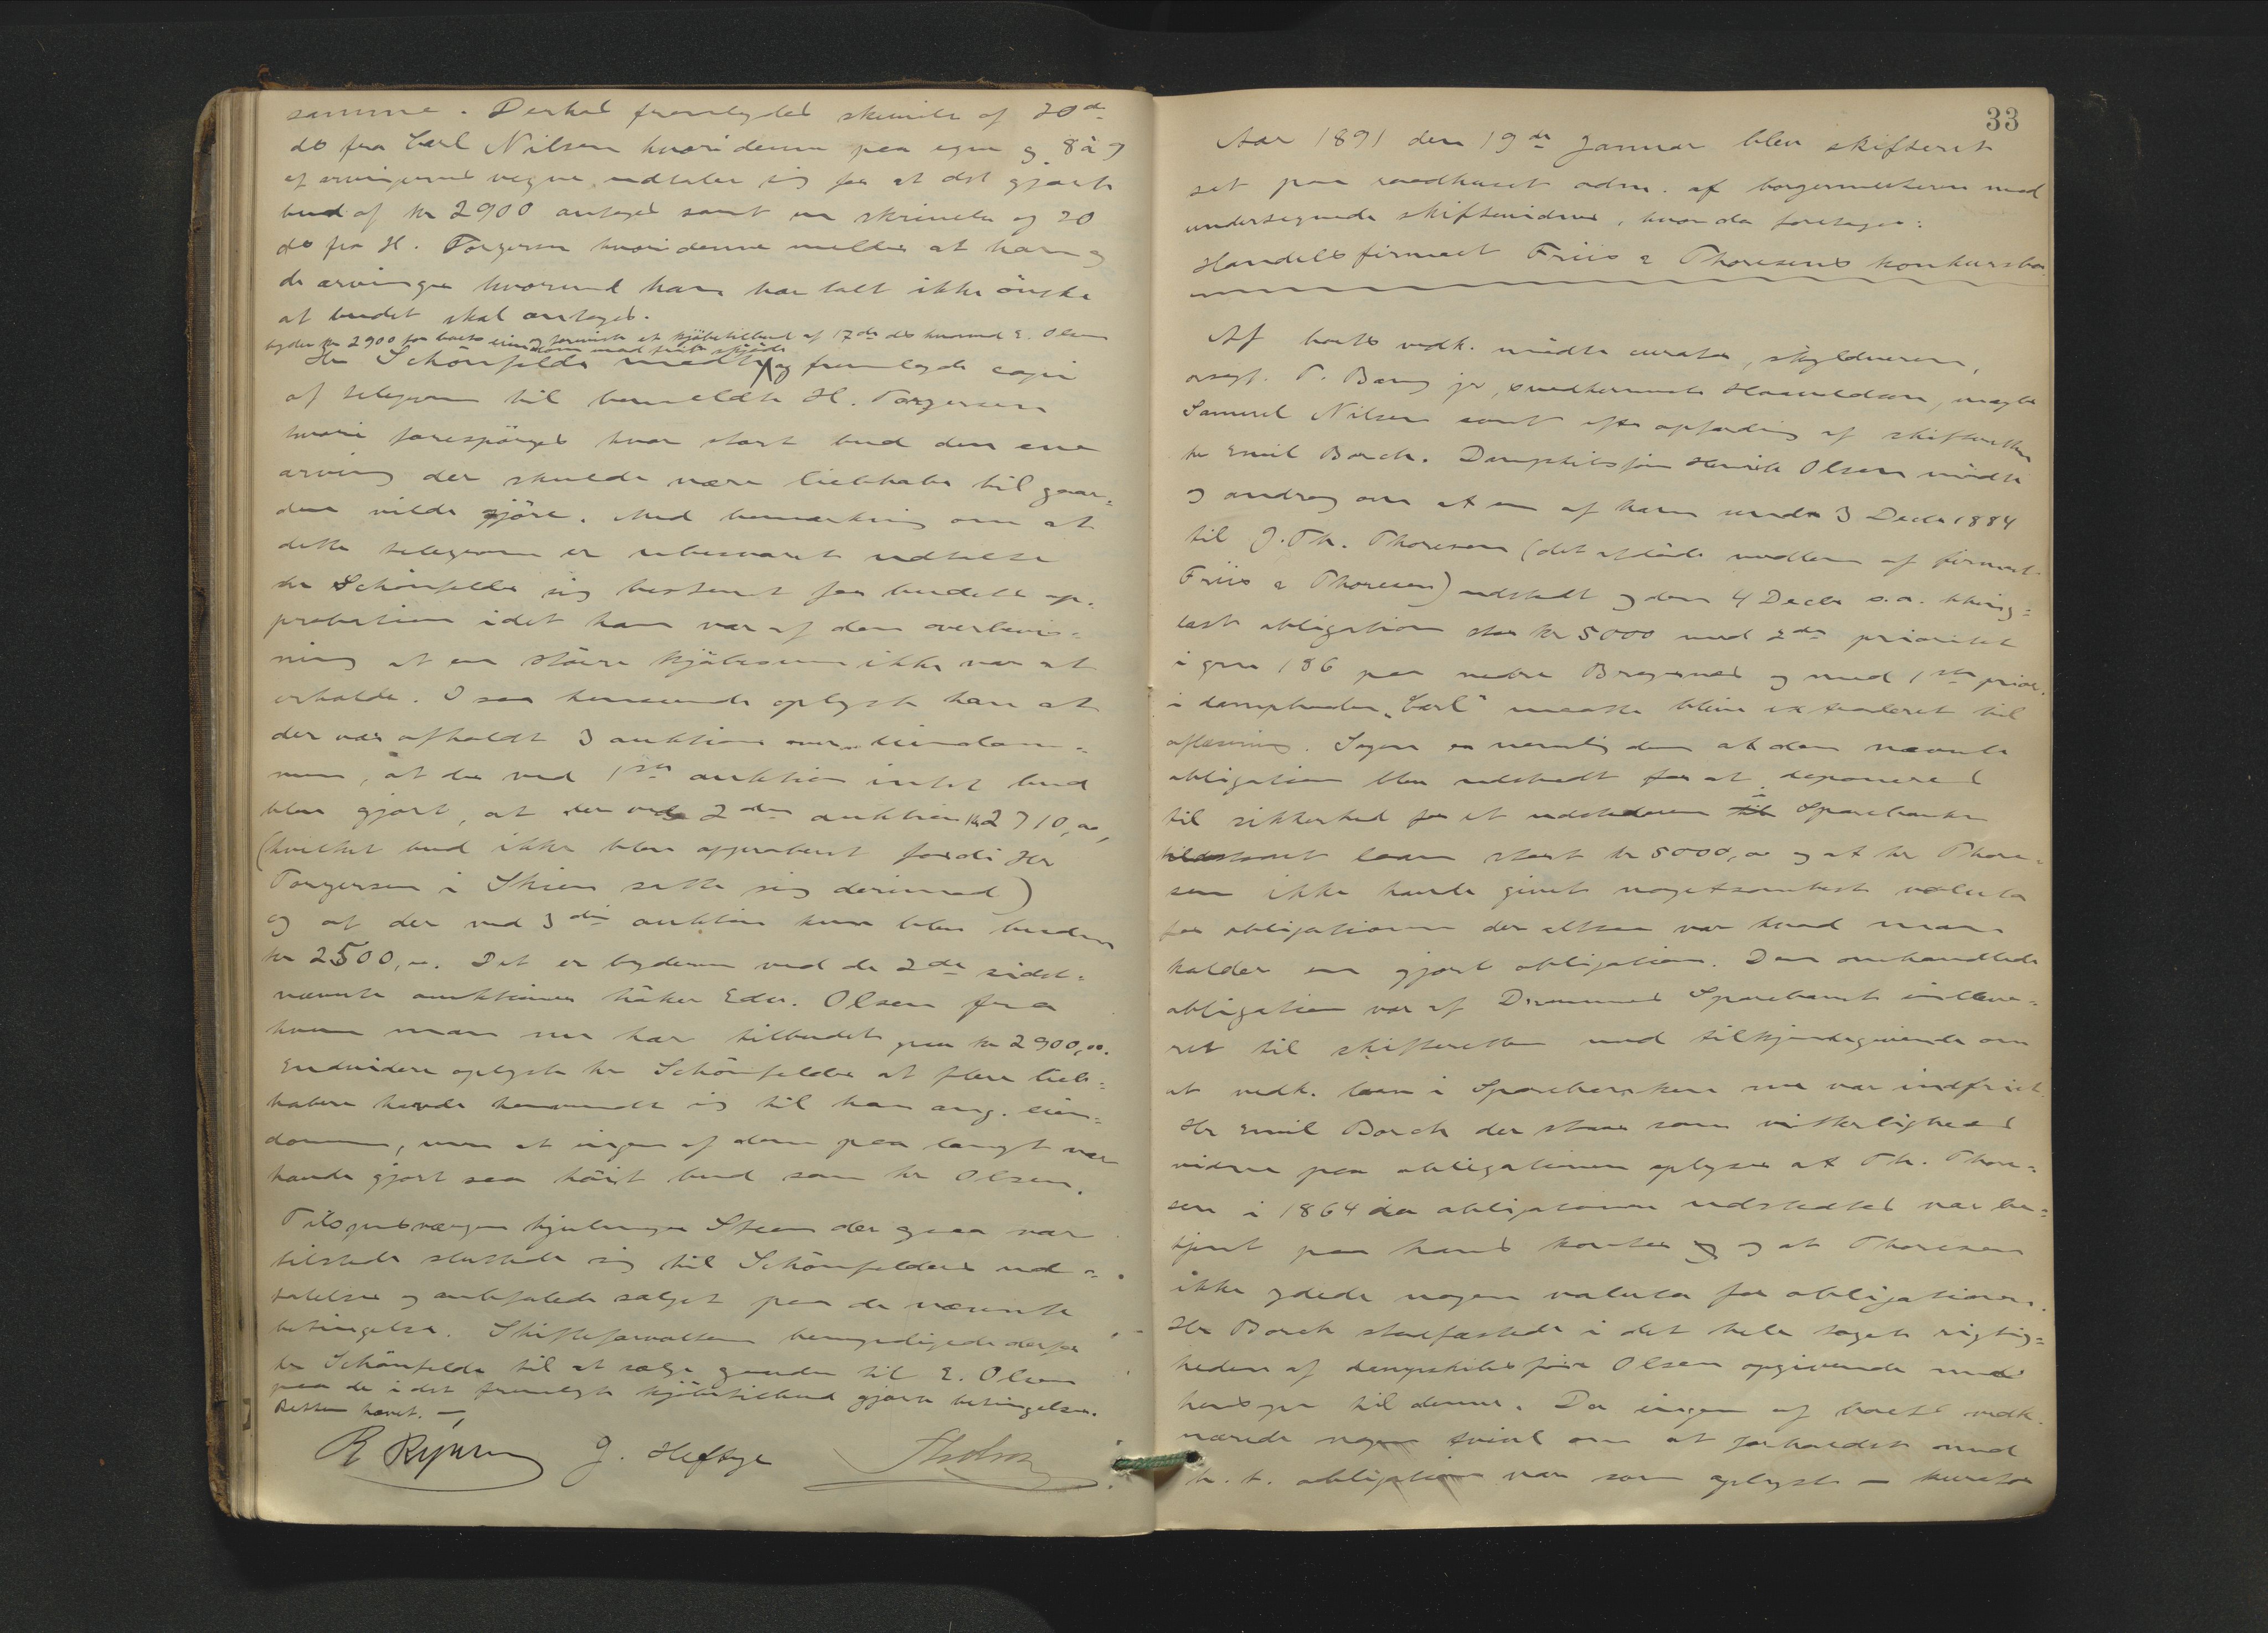 samme. Derhos fremlagdes skrivelse af 20de
ds fra Carl Nilsen hvori denne paa egne og 8 à 9
af arvingernes vegne udtaler sig for at det gjorte
bud af kr 2900 antages samt en skrivelse af 20
ds fra H. Torgersen hvori denne melder at han og
de arvinger hvormed han har talt ikke önske
at budet skal antages.
og foreviste et kjöbetilbud af 17de ds hvorved E. Olsen
byder kr 2900 for boets eiendom med frit skjöde
Hr Schönfelder mödte og fremlagde copi
af telegram til bemeldte H. Torgersen
hvori forespörges hvor stort bud den ene
arving der skulde være liebhaber til gaar=
den vilde gjöre. Med bemærkning om at
dette telegram er ubesvaret udtalte
hr Schönfelder sig bestemt for budets ap=
probation idet han var af den overbevis=
ning at en större kjöbesum ikke var at
erholde. I saa henseende oplyste han at
der var afholdt 3 auktioner over eiendom=
men, at der ved 1ste auktion intet bud
blev gjort, at der ved 2den auktion kr 2710,00,
(hvilket bud ikke blev approberet fordi Hr
Torgersen i Skien satte sig derimod)
og at der ved 3die auktion kun blev buden
kr 2500,00. Det er byderen ved de 2de sidst=
nævnte auktioner höker Edv. Olsen fra
hvem man nu har tilbudet paa kr 2900,00.
Endvidere oplyste hr Schönfelder at flere lieb=
habere havde henvendt sig til ham ang. eien=
dommen, men at ingen af dem paa langt nær
havde gjort saa höit bud som hr Olsen.
Tilsynsværgen Steen der ogsaa var
tilstede sluttede sig til Schönfelders ud=
talelse og anbefalede salget paa de nævnte
betingelser. Skifteforvalteren bemyndigede derfor
hr Schönfelder til at sælge gaarden til E. Olsen
paa de i det fremlagte kjöbetilbud gjorte betingelser.
Retten hævet.
J. Heftye
33
Aar 1891 den 19de Januar blev skifteret
sat paa raadhuset adm. af borgermesteren med
undertegnede skiftevidner, hvor da foretages:
Handelsfirmaet Friis & Thoresens konkursbo
Af boets vedk. mödte curator, skyldneren,
Samuel Nilsen samt efter opfordring af skifteretten
hr Emil Borch. Dampskibsförer Henrik Olsen mödte
og androg om at en af ham under 3 Decbr 1884
til J. Th. Thoresen (det aflöde medlem af firmaet
Friis & Thoresen) udstedt og den 4 Decbr s.a. thing=
læst obligation stor kr 5000 med 2den prioritet
i grn 186 paa nedre Bragernæs og med 1ste prior.
i dampbaaden "Carl" maatte blive extraderet til
aflæsning. Sagen er nemlig den at den nævnte
obligation blev udstedt for at deponeres
til sikkerhed for et udstederen i Sparebanken
laan stort kr 5000,00 og at hr Thore=
sen ikke havde givet nogetsomhelst valuta
for obligationen der altsaa var hvad man
kalder en gjort obligation. Den omhandlede
obligation var af Drammens Sparebank indleve=
ret til skifteretten med tilkjendegivende om
at vedk. laan i Sparebanken nu var indfriet.
Hr Emil Borch der staar som vitterligheds
vidne paa obligationen oplyser at Th. Thore=
sen i 1864 da obligationen udstedtes var be=
tjent paa hans kontor og at Thoresen
ikke ydede nogen valuta for obligationen.
Hr Borch stadfæstede i det hele taget rigtig=
heden af dampskibsförer Olsens opgivende med
hensyn til denne. Da ingen af boets vedk.
nærede nogen tvivl om at forholdet med
h. t. obligation var som oplyst — kurator